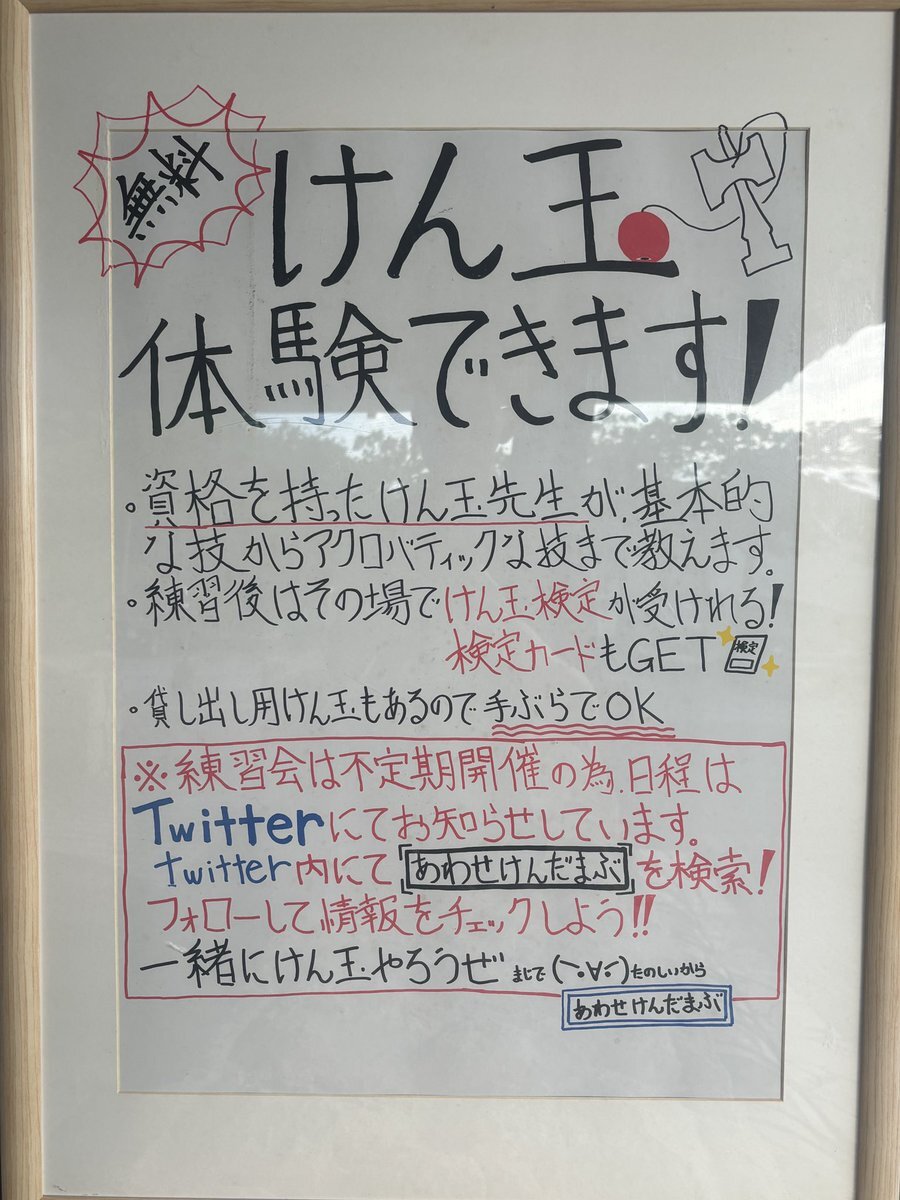 無料
けん玉
体験できます!
・資格を持ったけん玉先生が、基本的
な技からアクロバティックな技まで教えます。
・練習後はその場でけん玉検定が受けれる!
検定カードもGET 検定
・貸し出し用けん玉もあるので手ぶらでOK
※練習会は不定期開催の為、日程は
Twitterにてお知らせしています。
twitter内にて あわせけんだまぶ を検索!
フォローして情報をチェックしよう!!
一緒にけん玉やろうぜ まじで (¯∀¯) たのしいから
あわせけんだまぶ